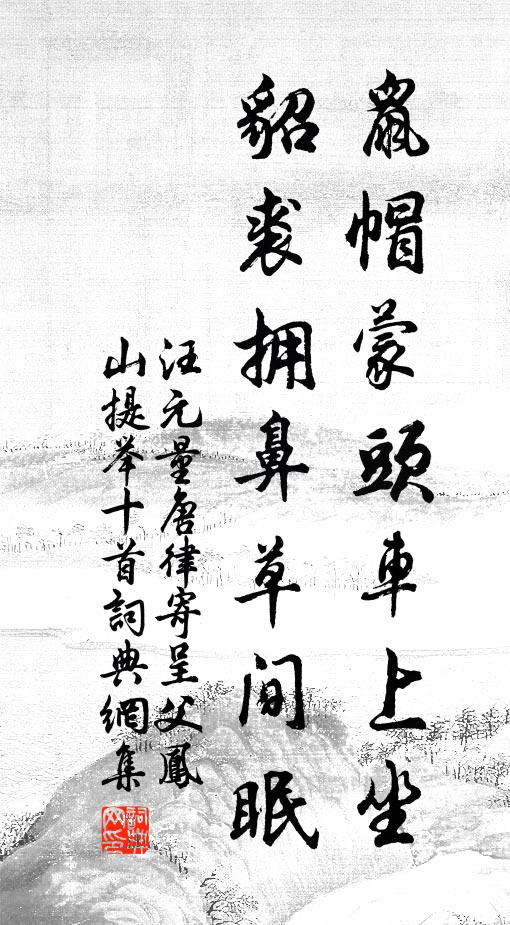 鼠帽蒙頭車上坐
貂裘拥鼻草间眠
汪元量唐律寄呈父鳳
山提举十首詞典網集